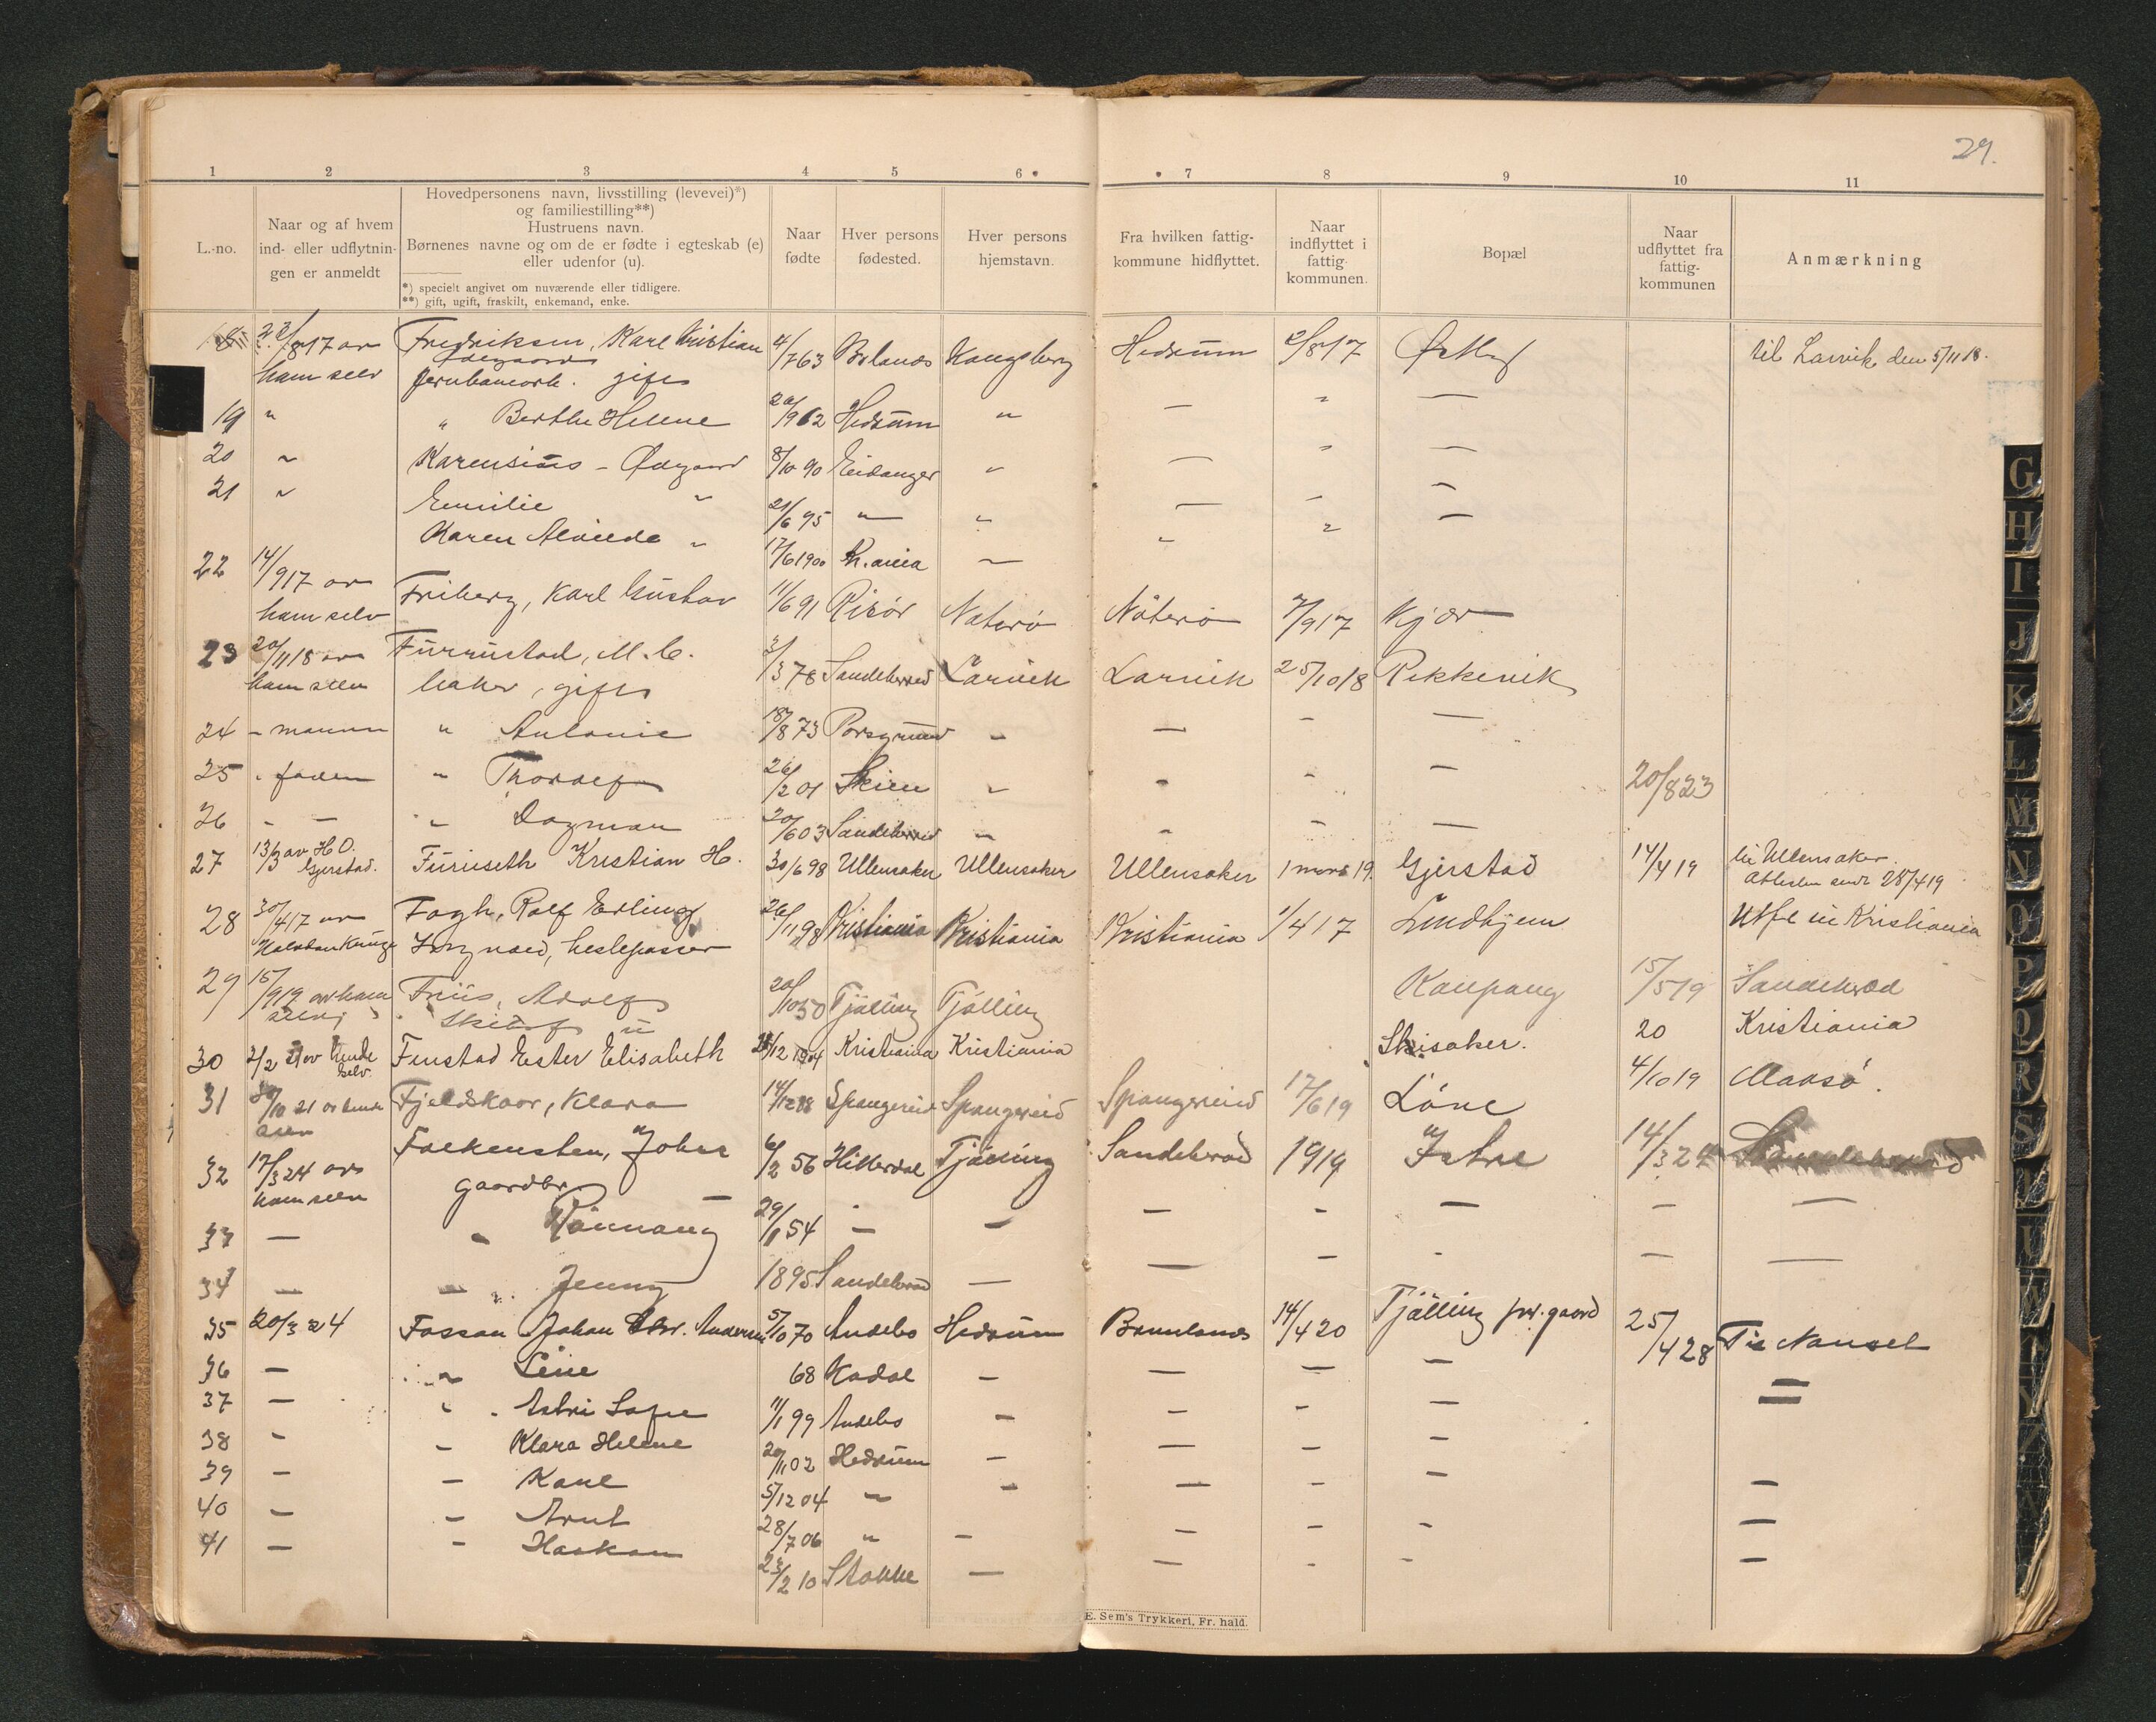 29.
1 2 3 4 5 6 7 8 9 10 11
L.-no.
Naar og af hvem
ind- eller udflytnin-
gen er anmeldt
Hovedpersonens navn, livsstilling (levevei)*)
og familiestilling**)
Hustruens navn.
Børnenes navne og om de er fødte i egteskab (e)
eller udenfor (u).
*) specielt angivet om nuværende eller tidligere.
**) gift, ugift, fraskilt, enkemand, enke.
Naar
fødte
Hver persons
fødested.
Hver persons
hjemstavn.
Fra hvilken fattig-
kommune hidflyttet.
Naar
indflyttet i
fattig-
kommunen.
Bopæl
Naar
udflyttet fra
fattig-
kommunen
Anmærkning
18 23/8 17 av Fredriksen, Karl Kristian 4/7 63 Kongsberg Hedrum 2/8 17 til Larvik den 5/11 18.
ham selv Jernbanearb. gift
19 " " Berthe Helene 20/9 62 Hedrum " — " —
20 " Karensius - Ødegaard 8/10 90 Eidanger " — " —
21 " Emilie " 21/6 95 " " — — —
Karen Alvilde " 17/6 1900 Kr.ania — " " —
22 14/9 17 av Friberg, Karl Gustav 11/6 91 Risør Nøterø Nøterø 7/9 17 Kjær
ham selv
23 20/11 18 av Furrustad, M. C. 3/3 78 Sandeherred Larvik Larvik 25/10 18 Rekkevik
ham selv baker, gift
24 - mannen " Antonie 18/8 73 Porsgrund " — — —
25 " faderen " Thoralf 26/2 01 Skien " - - — 20/8 23
26 - — " Dagmar 20/6 03 Sandeherred — - - —
27 13/3 av H O. Furuseth Kristian H. 30/6 98 Ullensaker Ullensaker Ullensaker 1 mars 19. Gjerstad 14/4 19 til Ullensaker.
Gjerstad. 28/4 19
28 30/4 17 av Fogh, Rolf Erling 26/11 98 Kristiania Kristiania Kristiania 1/4 17 Lindhjem Utfl til Kristiania
29 15/9 19 av ham Friis, Adolf 20/10 50 Tjølling Tjølling Kaupang 15/5 19 Sandeherred
selv
30 2/2 21 av hende Finstad Ester Elisabeth 12 1904 Kristiania Kristiania Skisaker. 20 Kristiania
selv.
31 10 21 av hende Fjeldskaar, Klara 14/12 88 Spangereid Spangereid Spangereid 17/6 19 Løve 4/10 19 Maasø.
selv
32 17/3 24 av Falkensten, Johs 6/2 56 Hitterdal Tjølling Sandeherred 1919 Istre 14/3 24 Sandeherred
ham selv gaardbr.
33 — " Rønnaug 29/1 54 — — — - — — —
34 — " Jenny 1895 Sandeherred — — — - — —
35 20/3 24 Fossan Johan Chr. Andersen 5/10 70 Andebo Hedrum Brunlanes 14/4 20 Tjølling pr. gaard 25/4 28 Til Nanset
36 — " Line 68 Kodal — — — — =
37 — " Astri Sofie 11/1 99 Andebo — — - —
38 - — Klara Helene 20/11 02 Hedrum — — — —
39 — — Karl 5/12 04 " — — — — —
40 — — Arnt 28/7 06 " — — — - —
41 — - Haakon 23/2 10 Stokke — — - - —
E. Sem's Trykkeri, Fr. hald.
G
H
I
J
K
L
M
N
O
P
Q
R
S
U
W
Y